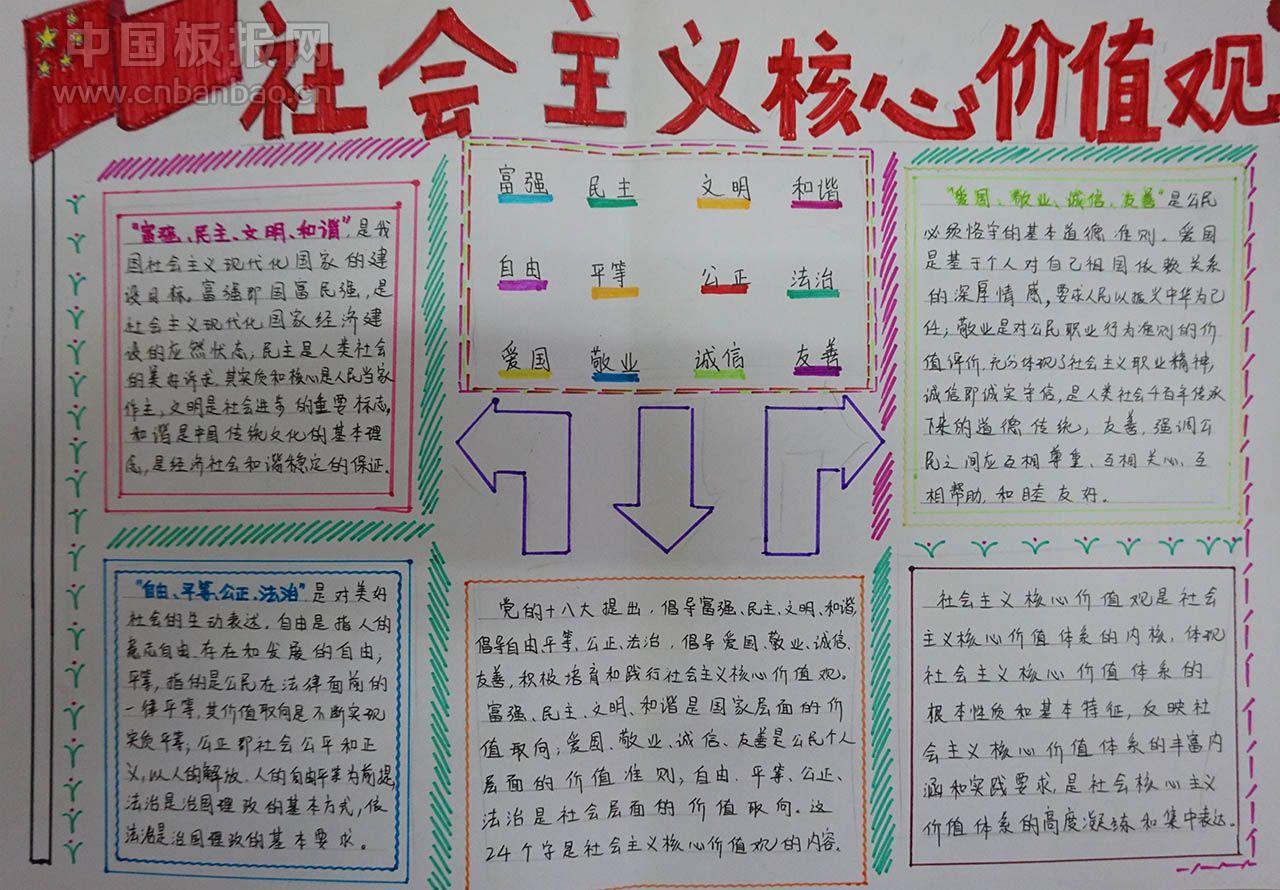 中国板报网
www.cnbanbao.cn
社会主义核心价值观
富强 民主 文明 和谐
自由 平等 公正 法治
爱国 敬业 诚信 友善
"富强、民主、文明、和谐"是我
国社会主义现代化国家的建
设目标。富强即国富民强，是
社会主义现代化国家经济建
设的应然状态，民主是人类社会
的美好诉求，其实质和核心是人民当家
作主，文明是社会进步的重要标志。
和谐是中国传统文化的基本理
念，是经济社会和谐稳定的保证。
"爱国、敬业、诚信、友善"是公民
必须恪守的基本道德准则。爱国
是基于个人对自己祖国依赖关系
的深厚情感，要求人民以振兴中华为己
任，敬业是对公民职业行为准则的价
值评价，充分体现了社会主义职业精神，
诚信即诚实守信，是人类社会千百年传承
下来的道德传统，友善，强调公
民之间应互相尊重、互相关心、互
相帮助，和睦友好。
"自由、平等、公正、法治"是对美好
社会的生动表达。自由是指人的
意志自由、存在和发展的自由；
平等，指的是公民在法律面前的
一律平等，其价值取向是不断实现
实质平等，公正即社会公平和正
义，以人的解放、人的自由平等为前提，
法治是治国理政的基本方式，依
法治是治国理政的基本要求。
党的十八大提出，倡导富强、民主、文明、和谐，
倡导自由平等、公正、法治，倡导爱国、敬业、诚信、
友善，积极培育和践行社会主义核心价值观。
富强、民主、文明、和谐是国家层面的价
值取向；爱国、敬业、诚信、友善是公民个人
层面的价值准则，自由、平等、公正、
法治是社会层面的价值取向。这
24个字是社会主义核心价值观的内容。
社会主义核心价值观是社会
主义核心价值体系的内核，体现
社会主义核心价值体系的
根本性质和基本特征，反映社
会主义核心价值体系的丰富内
涵和实践要求，是社会核心主义
价值体系的高度凝练和集中表达。